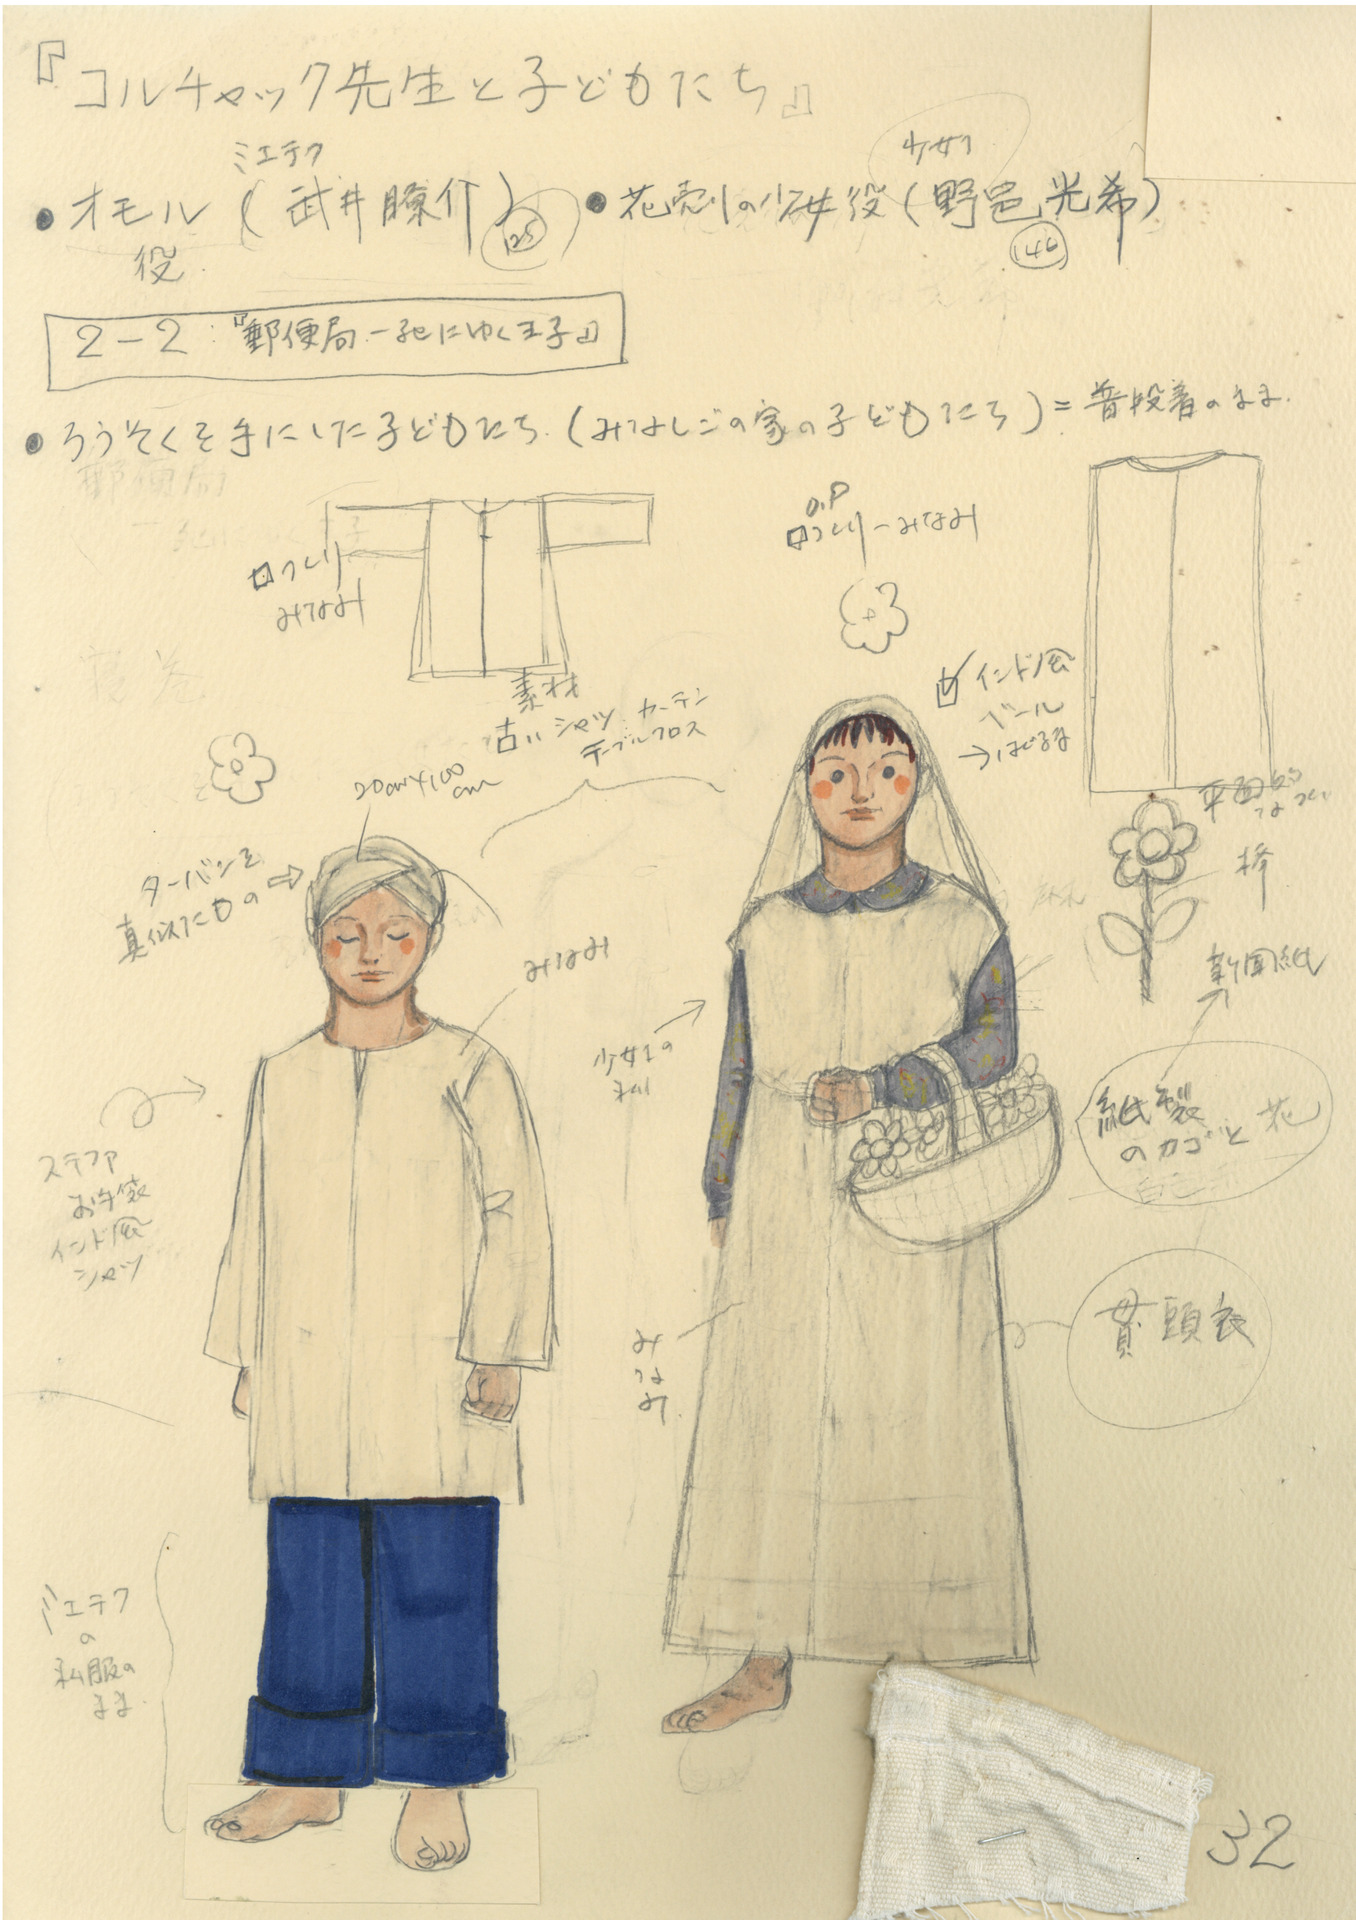 『コルチャック先生と子どもたち』
ミエテク
少女1
●オモル役(武井瞭介)
125
●花売りの少女役(野邑光希)
146
2-2:『郵便局-死にゆく王子』
●ろうそくを手にした子どもたち.(みなしごの家の子どもたち)=普段着のまま.
郵便局
つくり
みなみ
素材
古いシャツ カーテン
テーブルクロス
O.P
つくり-みなみ
インド風
ベール
20cm×100
cm
ターバンを
真似たもの
みなみ
平面的
新聞紙
少女1の
紙製
のカゴと花
ステファ
お手製
インド風
シャツ
みなみ
貫頭衣
ミエテク
の
私服の
まま.
32